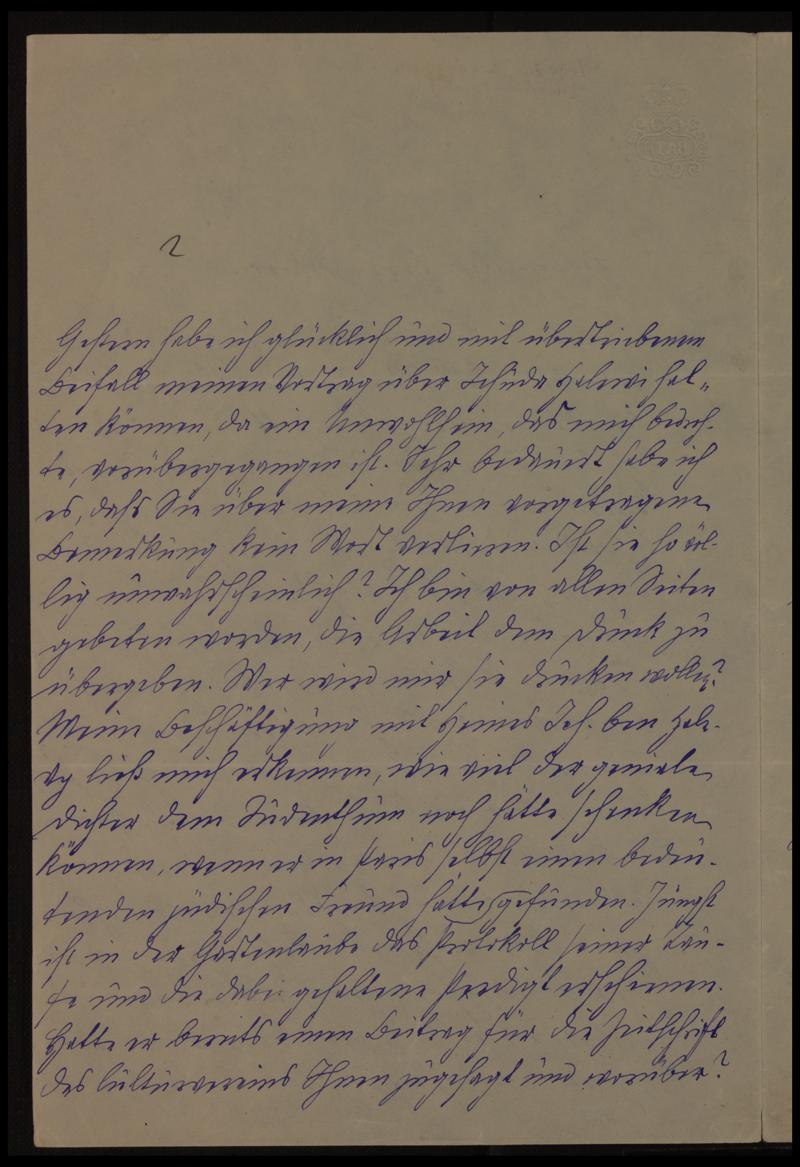 2
Gestern habe ich glücklich und mit übertriebenem
Beifall meinen Vortrag über Jehuda Halewi hal„
ten können, da ein Unwohlsein, das mich bedroh-
te, vorübergegangen ist. Sehr bedauert habe ich
es, dass Sie über meine Ihnen vorgetragene
Bemerkung kein Wort verlieren. Ist sie so völ-
lig unwahrscheinlich? Ich bin von allen Seiten
gebeten worden, die Arbeit dem Druck zu
übergeben. Wer wird mir sie drucken wollen?
Meine Beschäftigung mit Heines Jeh. ben Hale-
vy ließ mich erkennen, wie viel der geniale
Dichter dem Judenthum noch hätte schenken
können, wenn er in Paris selbst einen bedeu-
tenden jüdischen Freund hätte gefunden. Jüngst
ist in der Gartenlaube das Protokoll seiner Tau-
fe und die dabei gehaltene Predigt erschienen.
Hatte er bereits einen Beitrag für die Zeitschrift
des Culturvereins Ihnen zugesagt und worüber?